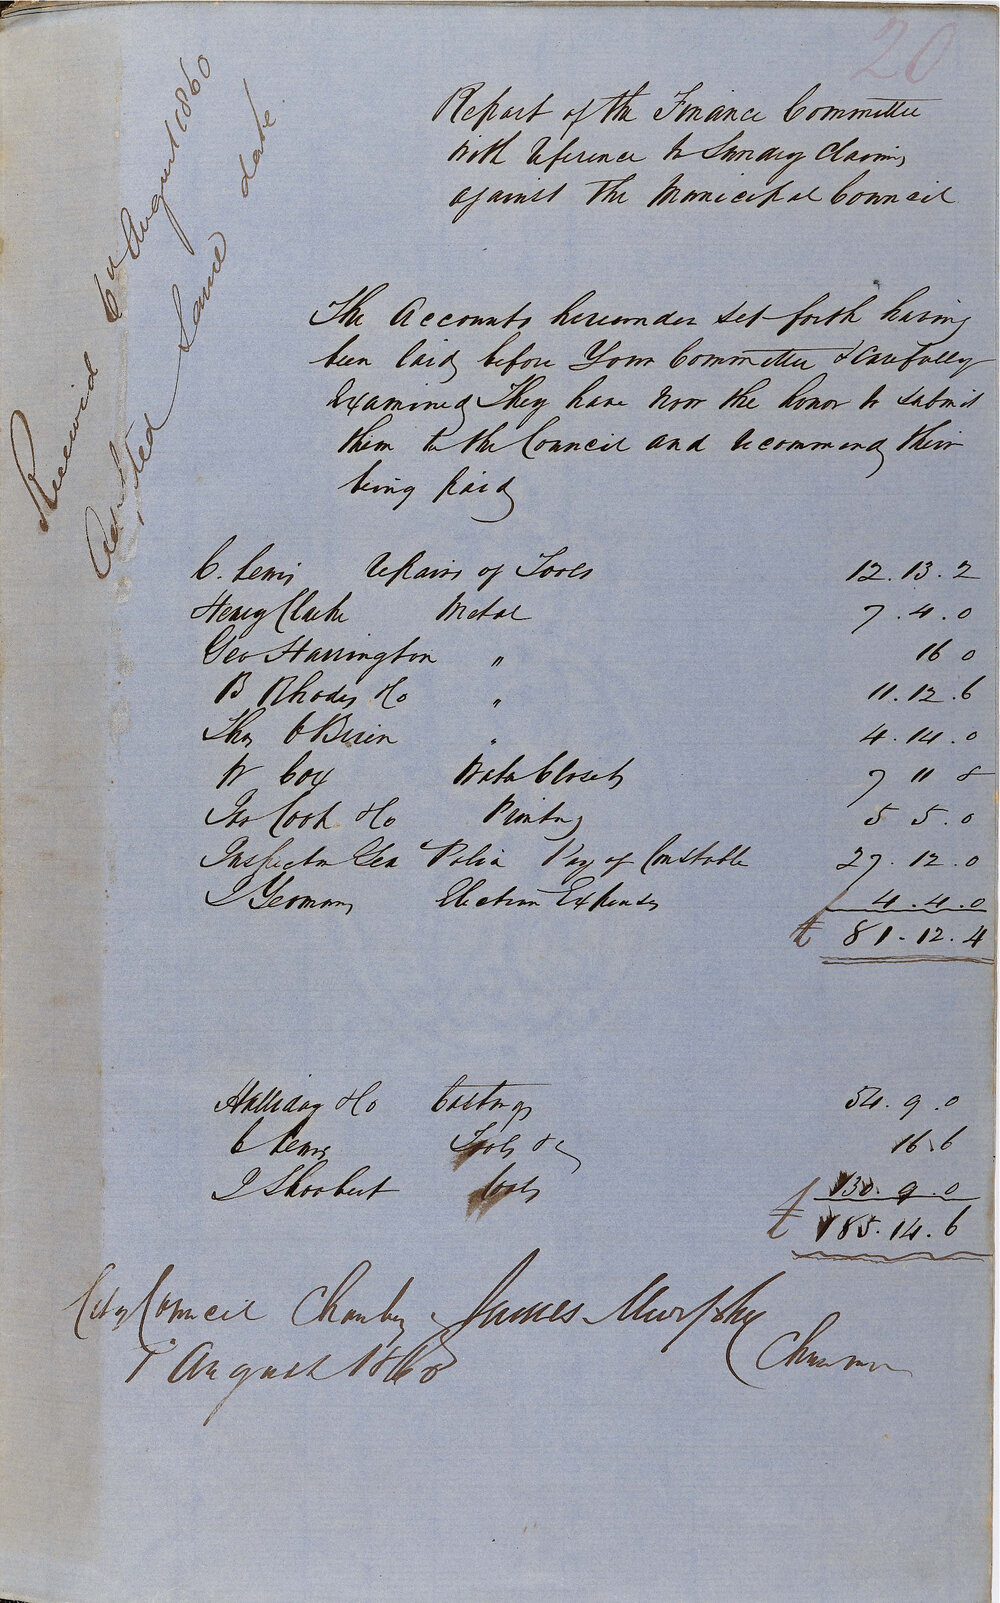 20
Received 6th August 1860
Adopted Same date
Report of the Finance Committee
with reference to Sundry Claims
against the Municipal Council
The Accounts hereunder set forth having
been laid before Your Committee & carefully
Examined They have now the honor to submit
them to the Council and recommend their
being paid
C. Lewis Repairs of Tools 12.13.2
Henry Clarke Metal 7.4.0
Geo Harrington " 16 0
B Rhodes & Co " 11.12.6
Thos O Brien " 4.14.0
W Cox Water Closets 7 11 8
Jno Cook & Co Printing 5 5.0
Inspector Gen Police Pay of Constable 27.12.0
J Yeomans Election Expenses 4.4.0
£ 81.12.4
Halliday & Co Castings 54.9.0
C Lewis Tools &c 16.6
J Shoobert 130.9.0
£ 185.14.6
City Council Chamber James Murphy
1st August 1860 Chairman